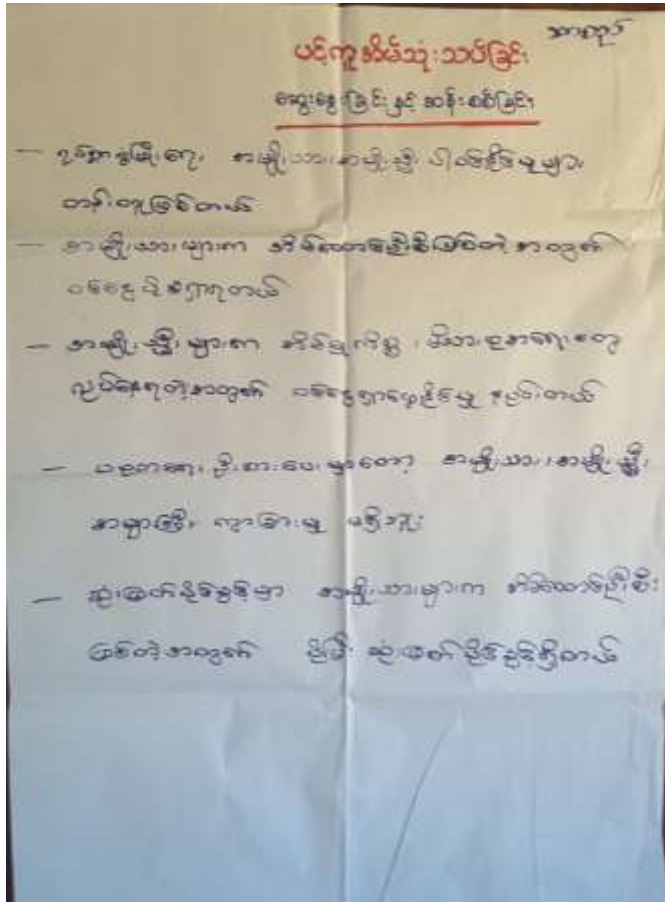 အားထုတ်
ပင့်ကူအိမ်သုံးသပ်ခြင်း
ဆွေးနွေးခြင်းနှင့် ဆန်းစစ်ခြင်း
အမျိုးသား၊ အမျိုးသမီး ပါဝင်နိုင်မှုများ
တန်းတူဖြစ်တယ်
— အမျိုးသားများက အိမ်ထောင်ဦးစီးဖြစ်တဲ့အတွက်
ဝင်ငွေပိုရှာရတယ်
— အမျိုးသမီးများက အိမ်မှုကိစ္စ၊ မိသားစုအရေးတွေ
လုပ်နေရတဲ့အတွက် ဝင်ငွေရှာဖွေနိုင်မှု နည်းတယ်
— ပညာရေး ဦးစားပေးမှာတော့ အမျိုးသား၊ အမျိုးသမီး
အများကြီး ကွာခြားမှု မရှိဘူး
— ဆုံးဖြတ်နိုင်ခွင့်မှာ အမျိုးသားများက အိမ်ထောင်ဦးစီး
ဖြစ်တဲ့အတွက် ပိုပြီး ဆုံးဖြတ်နိုင်ခွင့်ရှိတယ်